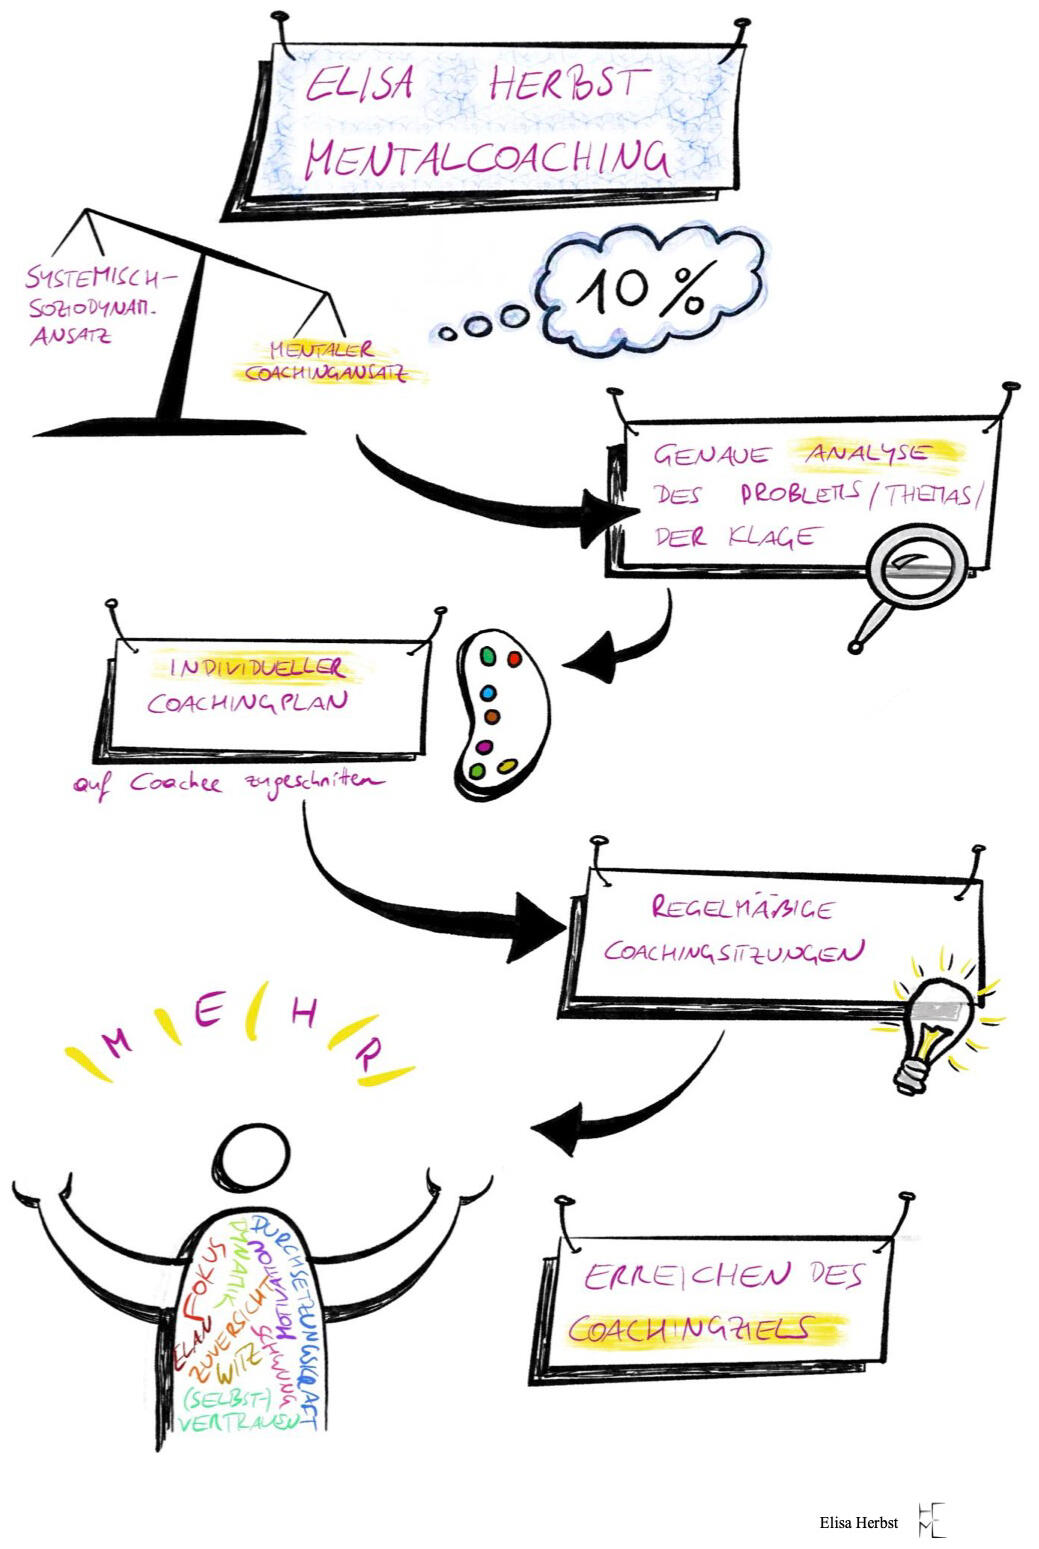 ELISA HERBST
MENTALCOACHING
SYSTEMISCH-
SOZIODYNAM.
ANSATZ
MENTALER
COACHINGANSATZ
10 %
GENAUE ANALYSE
DES PROBLEMS/THEMAS/
DER KLAGE
INDIVIDUELLER
COACHINGPLAN
auf Coachee zugeschnitten
REGELMÄßIGE
COACHINGSITZUNGEN
MEHR
FOKUS
DYNAMIK
DURCHSETZUNGSKRAFT
MOTIVATION
ELAN
ZUVERSICHT
SCHWUNG
WITZ
(SELBST-)
VERTRAUEN
ERREICHEN DES
COACHINGZIELS
Elisa Herbst